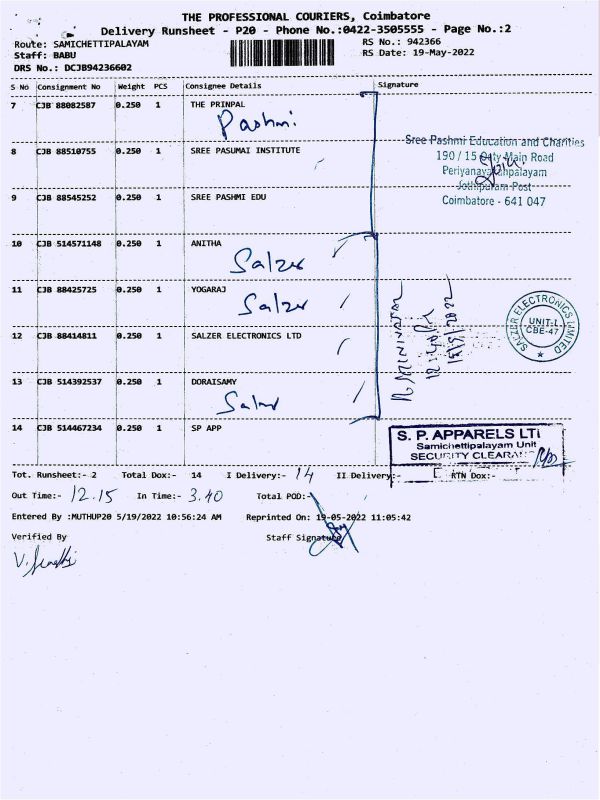 THE PROFESSIONAL COURIERS, Coimbatore
Delivery Runsheet - P20 - Phone No.:0422-3505555 - Page No.:2
Route: SAMICHETTIPALAYAM RS No.: 942366
Staff: BABU RS Date: 19-May-2022
DRS No.: DCJB94236602
S No Consignment No Weight PCS Consignee Details Signature
7 CJB 88082587 0.250 1 THE PRINPAL
Pashmi
Sree Pashmi Education and Charities
8 CJB 88510755 0.250 1 SREE PASUMAI INSTITUTE
190 / 15 Ooty Main Road
Periyanayakanpalayam
Jothipuram Post
9 CJB 88545252 0.250 1 SREE PASHMI EDU
Coimbatore - 641 047
10 CJB 514571148 0.250 1 ANITHA
Salzer
11 CJB 88425725 0.250 1 YOGARAJ
Salzer
SALZER ELECTRONICS LIMITED
UNIT-I
CBE-47
12 CJB 88414811 0.250 1 SALZER ELECTRONICS LTD
13 CJB 514392537 0.250 1 DORAISAMY
Salzer
14 CJB 514467234 0.250 1 SP APP
S. P. APPARELS LT
Samichettipalayam Unit
SECURITY CLEARAN
Tot. Runsheet:- 2 Total Dox:- 14 I Delivery:- 14 II Delivery:- RTN Dox:-
Out Time:- 12.15 In Time:- 3.40 Total POD:-
Entered By :MUTHUP20 5/19/2022 10:56:24 AM Reprinted On: 19-05-2022 11:05:42
Verified By Staff Signature